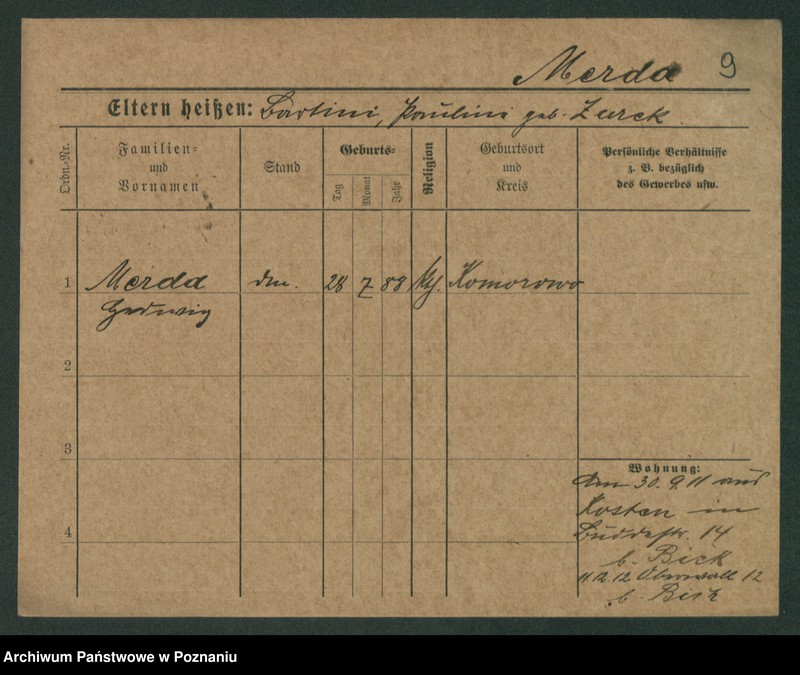 Merda 9
Eltern heißen: Bartini, Paulini geb. Zurek
Ordn.-Nr.
Familien- und Vornamen
Stand
Geburts-
Tag
Monat
Jahr
Religion
Geburtsort und Kreis
Persönliche Verhältnisse z. B. bezüglich des Gewerbes usw.
1 Merda 28 7 88 kth. Komorowo
Hedwig
2
3
4
Wohnung:
Am 30.9.11 aus
Kosten in
Buddestr. 14
b. Bick
11.12.12 Oberwall 12
b. Bick
Archiwum Państwowe w Poznaniu